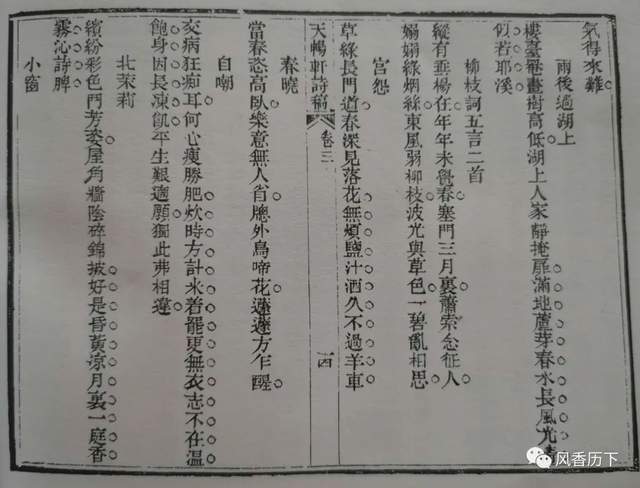 氣得來難
雨後過湖上
樓臺罨畫樹高低湖上人家靜掩扉滿地蘆芽春水長風光
何若耶溪
柳枝詞五言二首
縱有垂楊在年年未覺春塞門三月裏蕭索念征人
嫋嫋綠烟絲東風弱柳枝波光與草色一碧亂相思
宮怨
草綠長門道春深見落花無煩鹽汁洒久不過羊車
天暢軒詩稿 卷三 十四
春曉
當春恣高臥樂意無人省牕外鳥啼花蘧蘧方乍醒
自嘲
交病狂痴耳何心瘦勝肥炊時方計米着罷更無衣志不在溫
飽身因長凍飢平生艱適願獨此弗相違
北茉莉
繽紛彩色鬥芳姿屋角牆陰碎錦披好是昏黃涼月裏一庭香
霧沁詩脾
小窗
风香历下